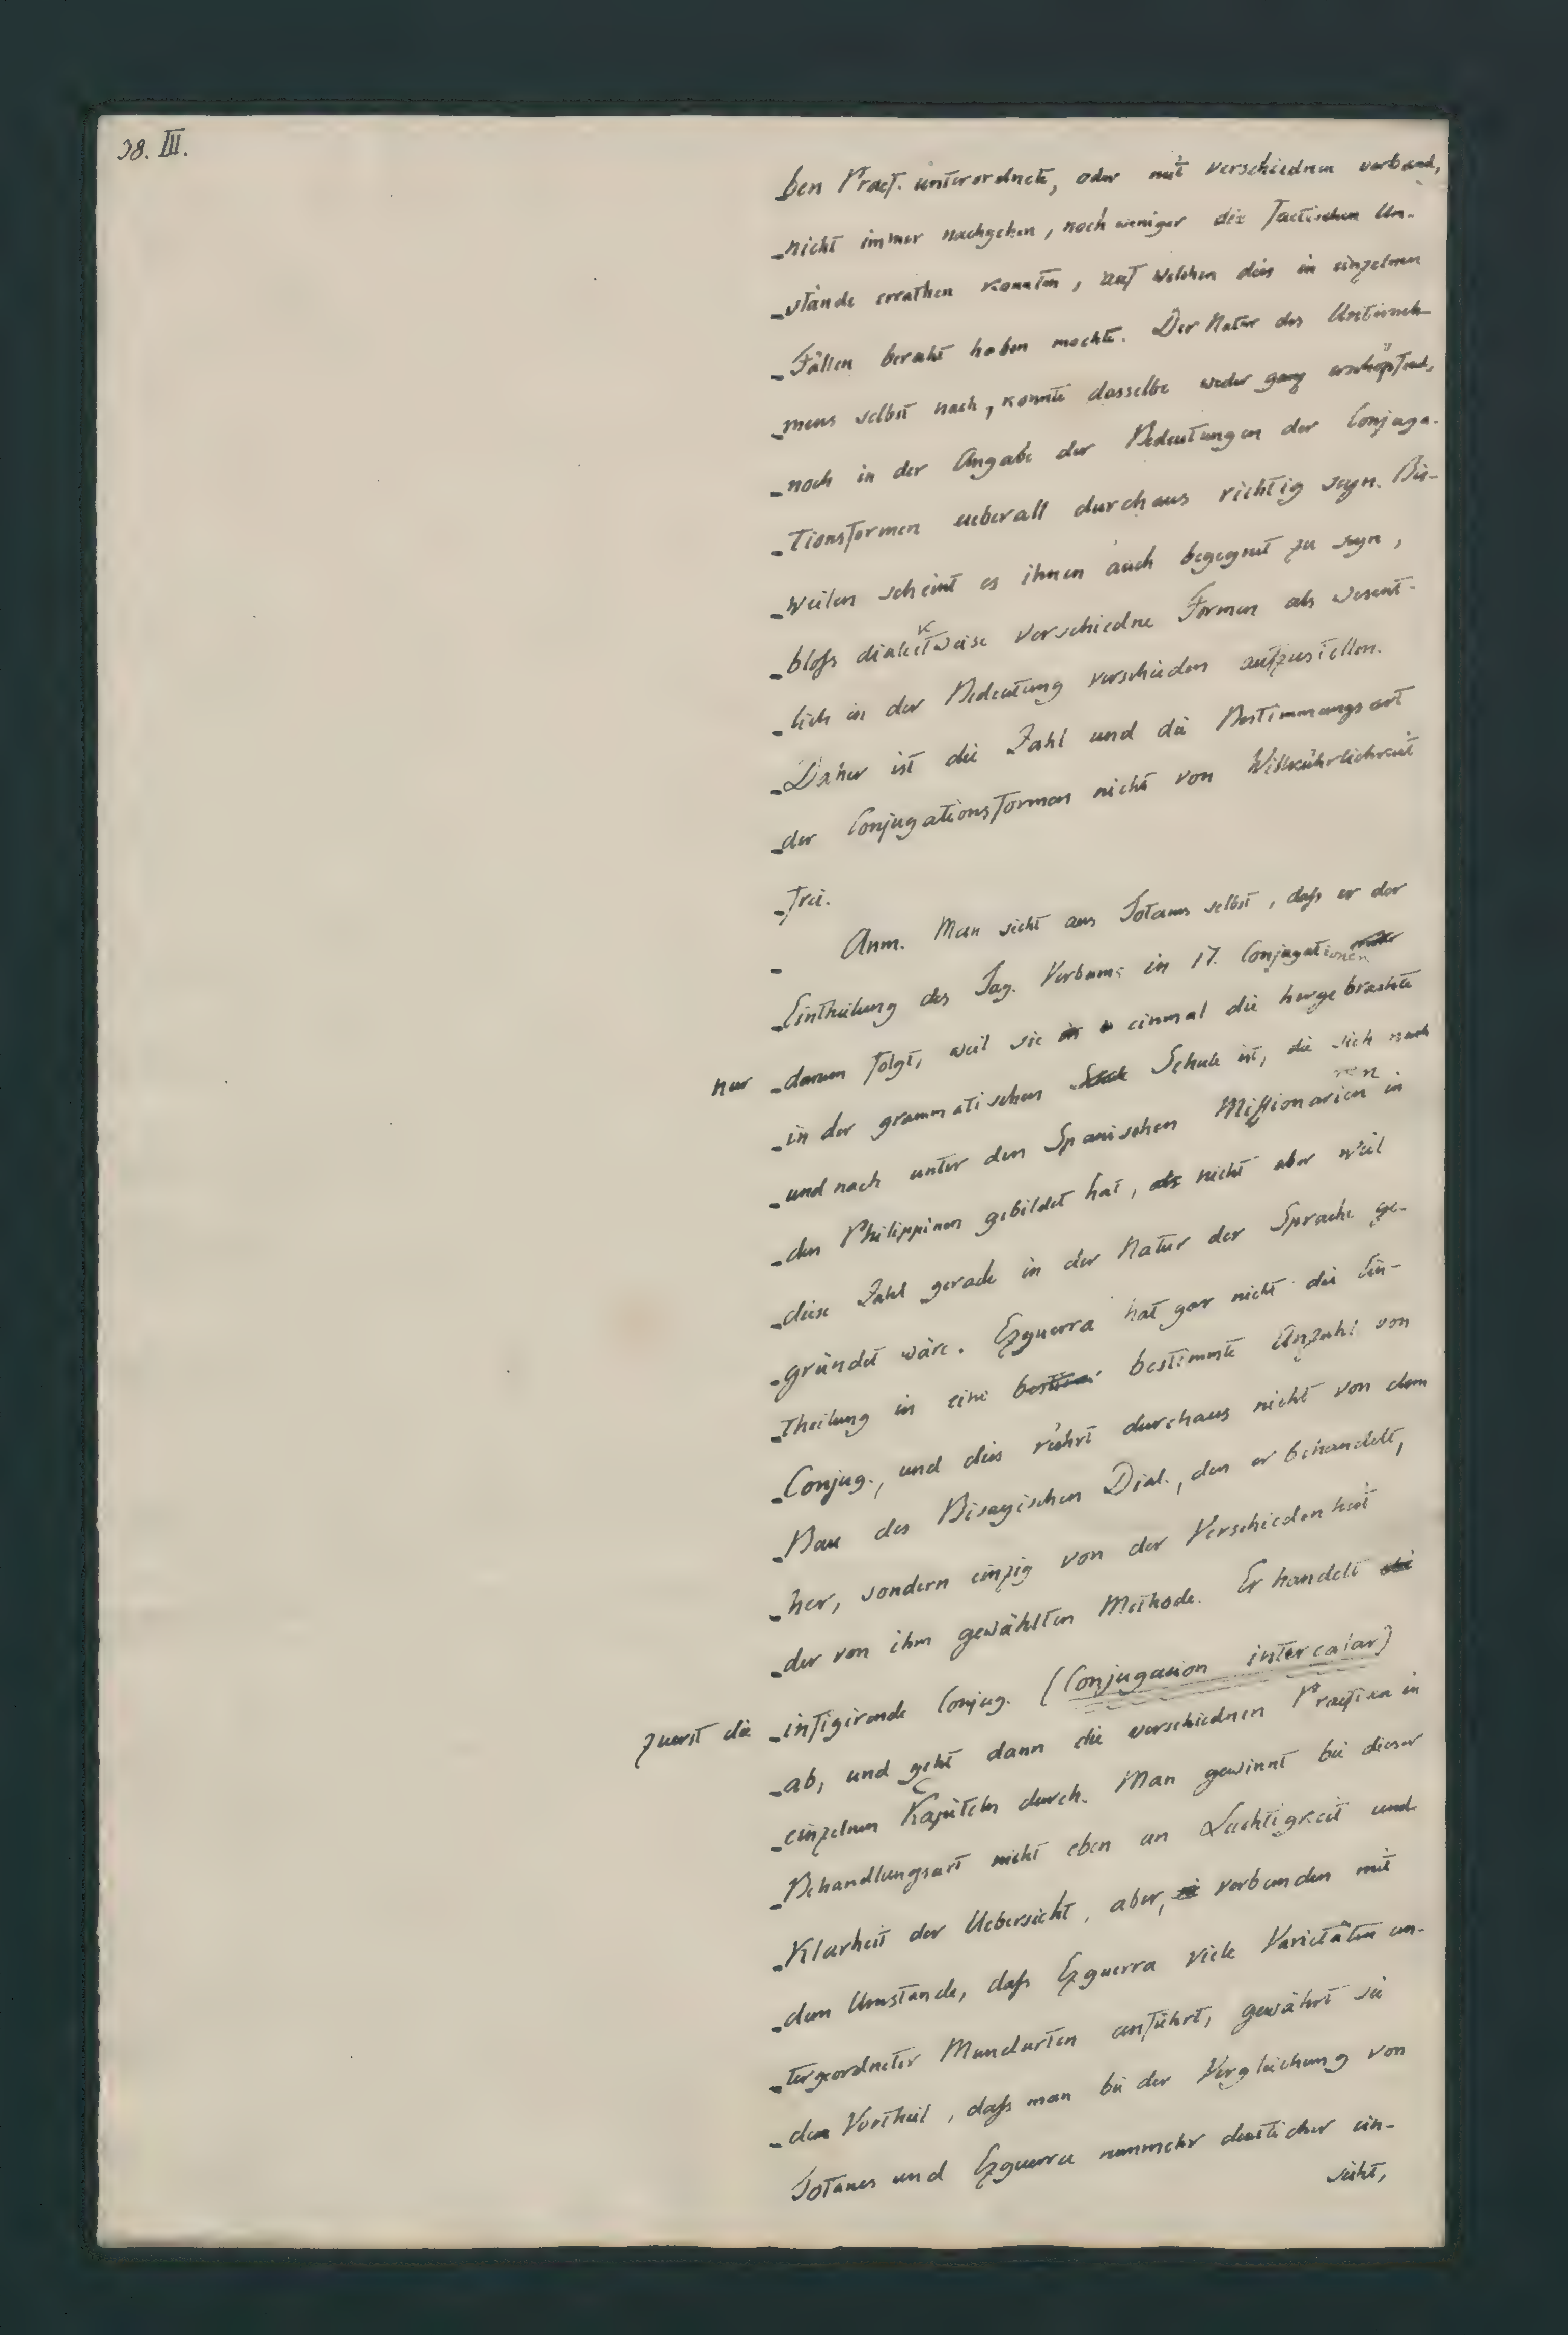 38. III.
ben Praef. unterordnete, oder mit verschiednen verband,
nicht immer nachgehen, noch weniger die factischen Um-
stände errathen konnten, auf welchen dies in einzelnen
Fällen beruht haben mochte. Der Natur des Unterneh-
mens selbst nach, konnte dasselbe weder ganz erschöpfend,
noch in der Angabe der Bedeutungen der Conjuga-
tionsformen ueberall durchaus richtig seyn. Bis-
weilen scheint es ihnen auch begegnet zu seyn,
bloſs dialektweise verschiedne Formen als wesent-
lich in der Bedeutung verschieden aufzustellen.
Daher ist die Zahl und die Bestimmungsart
der Conjugationsformen nicht von Willkührlichkeit
frei.
Anm. Man sieht aus Totanes selbst, daſs er der
Eintheilung des Tag. Verbums in 17. Conjugationen
nur darum folgt, weil sie einmal die hergebrachte
in der grammatischen Schule ist, die sich nach
und nach unter den Spanischen Miſsionarien in
den Philippinen gebildet hat, nicht aber weil
diese Zahl gerade in der Natur der Sprache ge-
gründet wäre. Ezguerra hat gar nicht die Ein-
theilung in eine bestimmte Anzahl von
Conjug., und dies rührt durchaus nicht von dem
Bau des Bisayischen Dial., den er behandelt,
her, sondern einzig von der Verschiedenheit
der von ihm gewählten Methode. Er handelt
zuerst die infigirende Conjug. (Conjugacion intercalar)
ab, und geht dann die verschiednen Praefixa in
einzelnen Kapiteln durch. Man gewinnt bei dieser
Behandlungsart nicht eben an Leichtigkeit und
Klarheit der Uebersicht, aber, verbunden mit
dem Umstande, daſs Ezguerra viele Varietäten un-
tergeordneter Mundarten anführt, gewährt sie
den Vortheil, daſs man bei der Vergleichung von
Totanes und Ezguerra nunmehr deutlicher ein-
sieht,